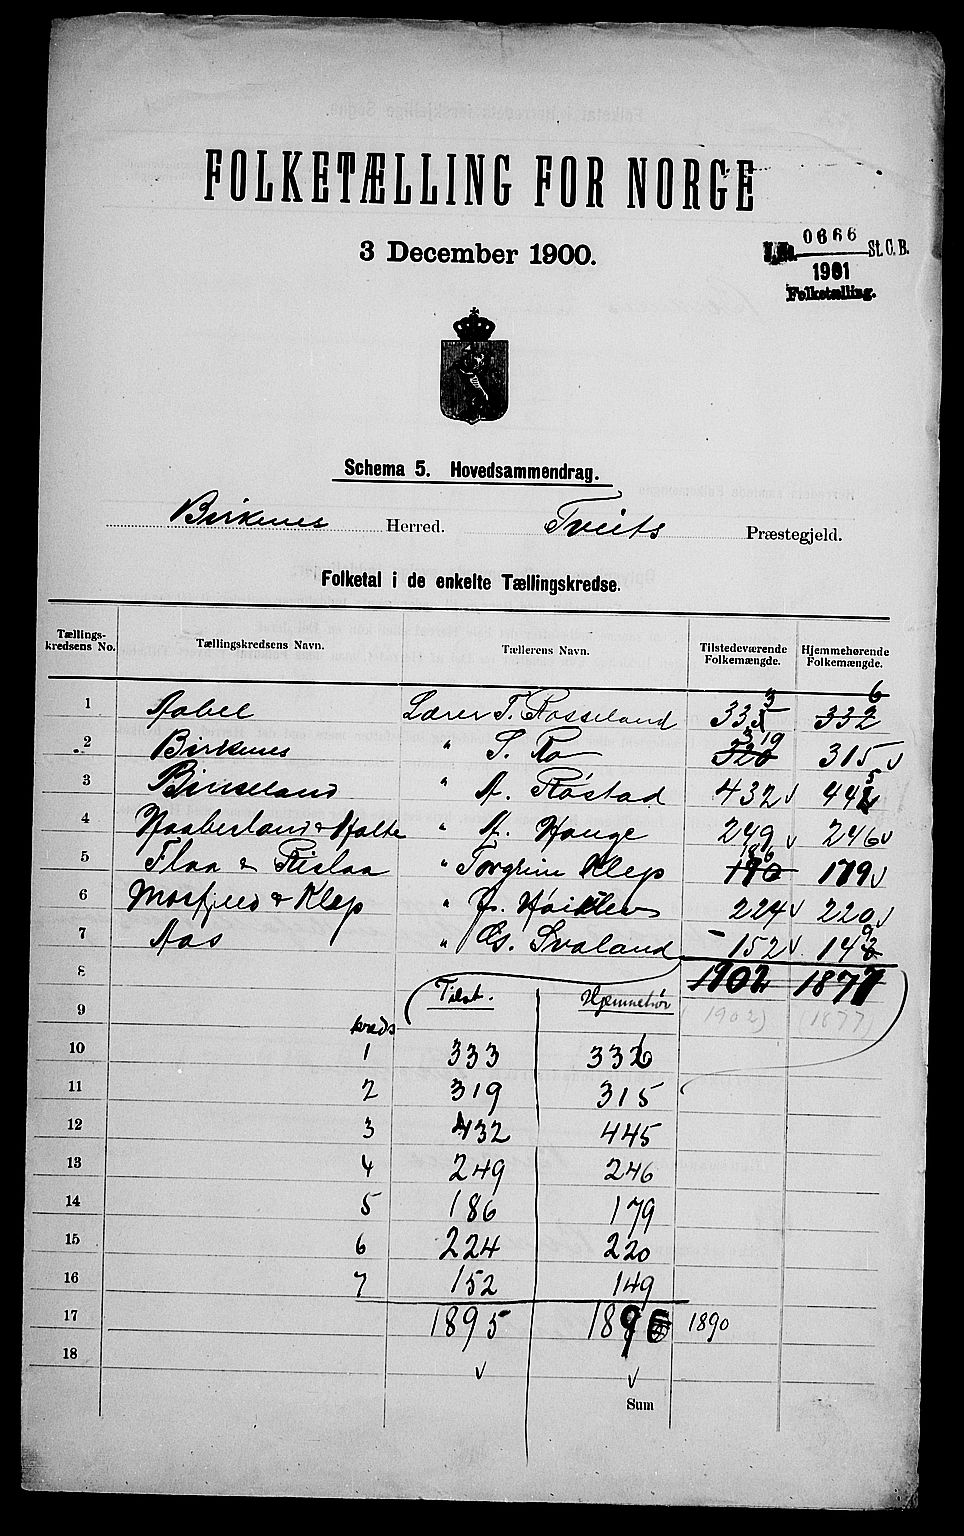 FOLKETÆLLING FOR NORGE
3 December 1900.
0666 St. C. B.
1901
Folketælling.
Schema 5. Hovedsammendrag.
Birkenes Herred. Tveits Præstegjeld.
Folketal i de enkelte Tællingskredse.
Tællings-kredsens No. Tællingskredsens Navn. Tællerens Navn. Tilstedeværende Folkemængde. Hjemmehørende Folkemængde.
1 Aabel Lærer T. Rosseland 333 336
2 Birkenes " S. Ro 320 319 315
3 Birkeland " A. Røstad 432 445
4 Haaberland & Holte " A. Hauge 249 246
5 Flaa & Rislaa " Torgrim Klep 190 186 179
6 Mosfjed & Klep " 224 220
7 Aas " Svaland 152 149
8 1902 1877
9 Tilst. Hjemmehør (1902) (1877)
kreds
10 1 333 336
11 2 319 315
12 3 432 445
13 4 249 246
14 5 186 179
15 6 224 220
16 7 152 149
17 1895 1890 1890
18
Sum